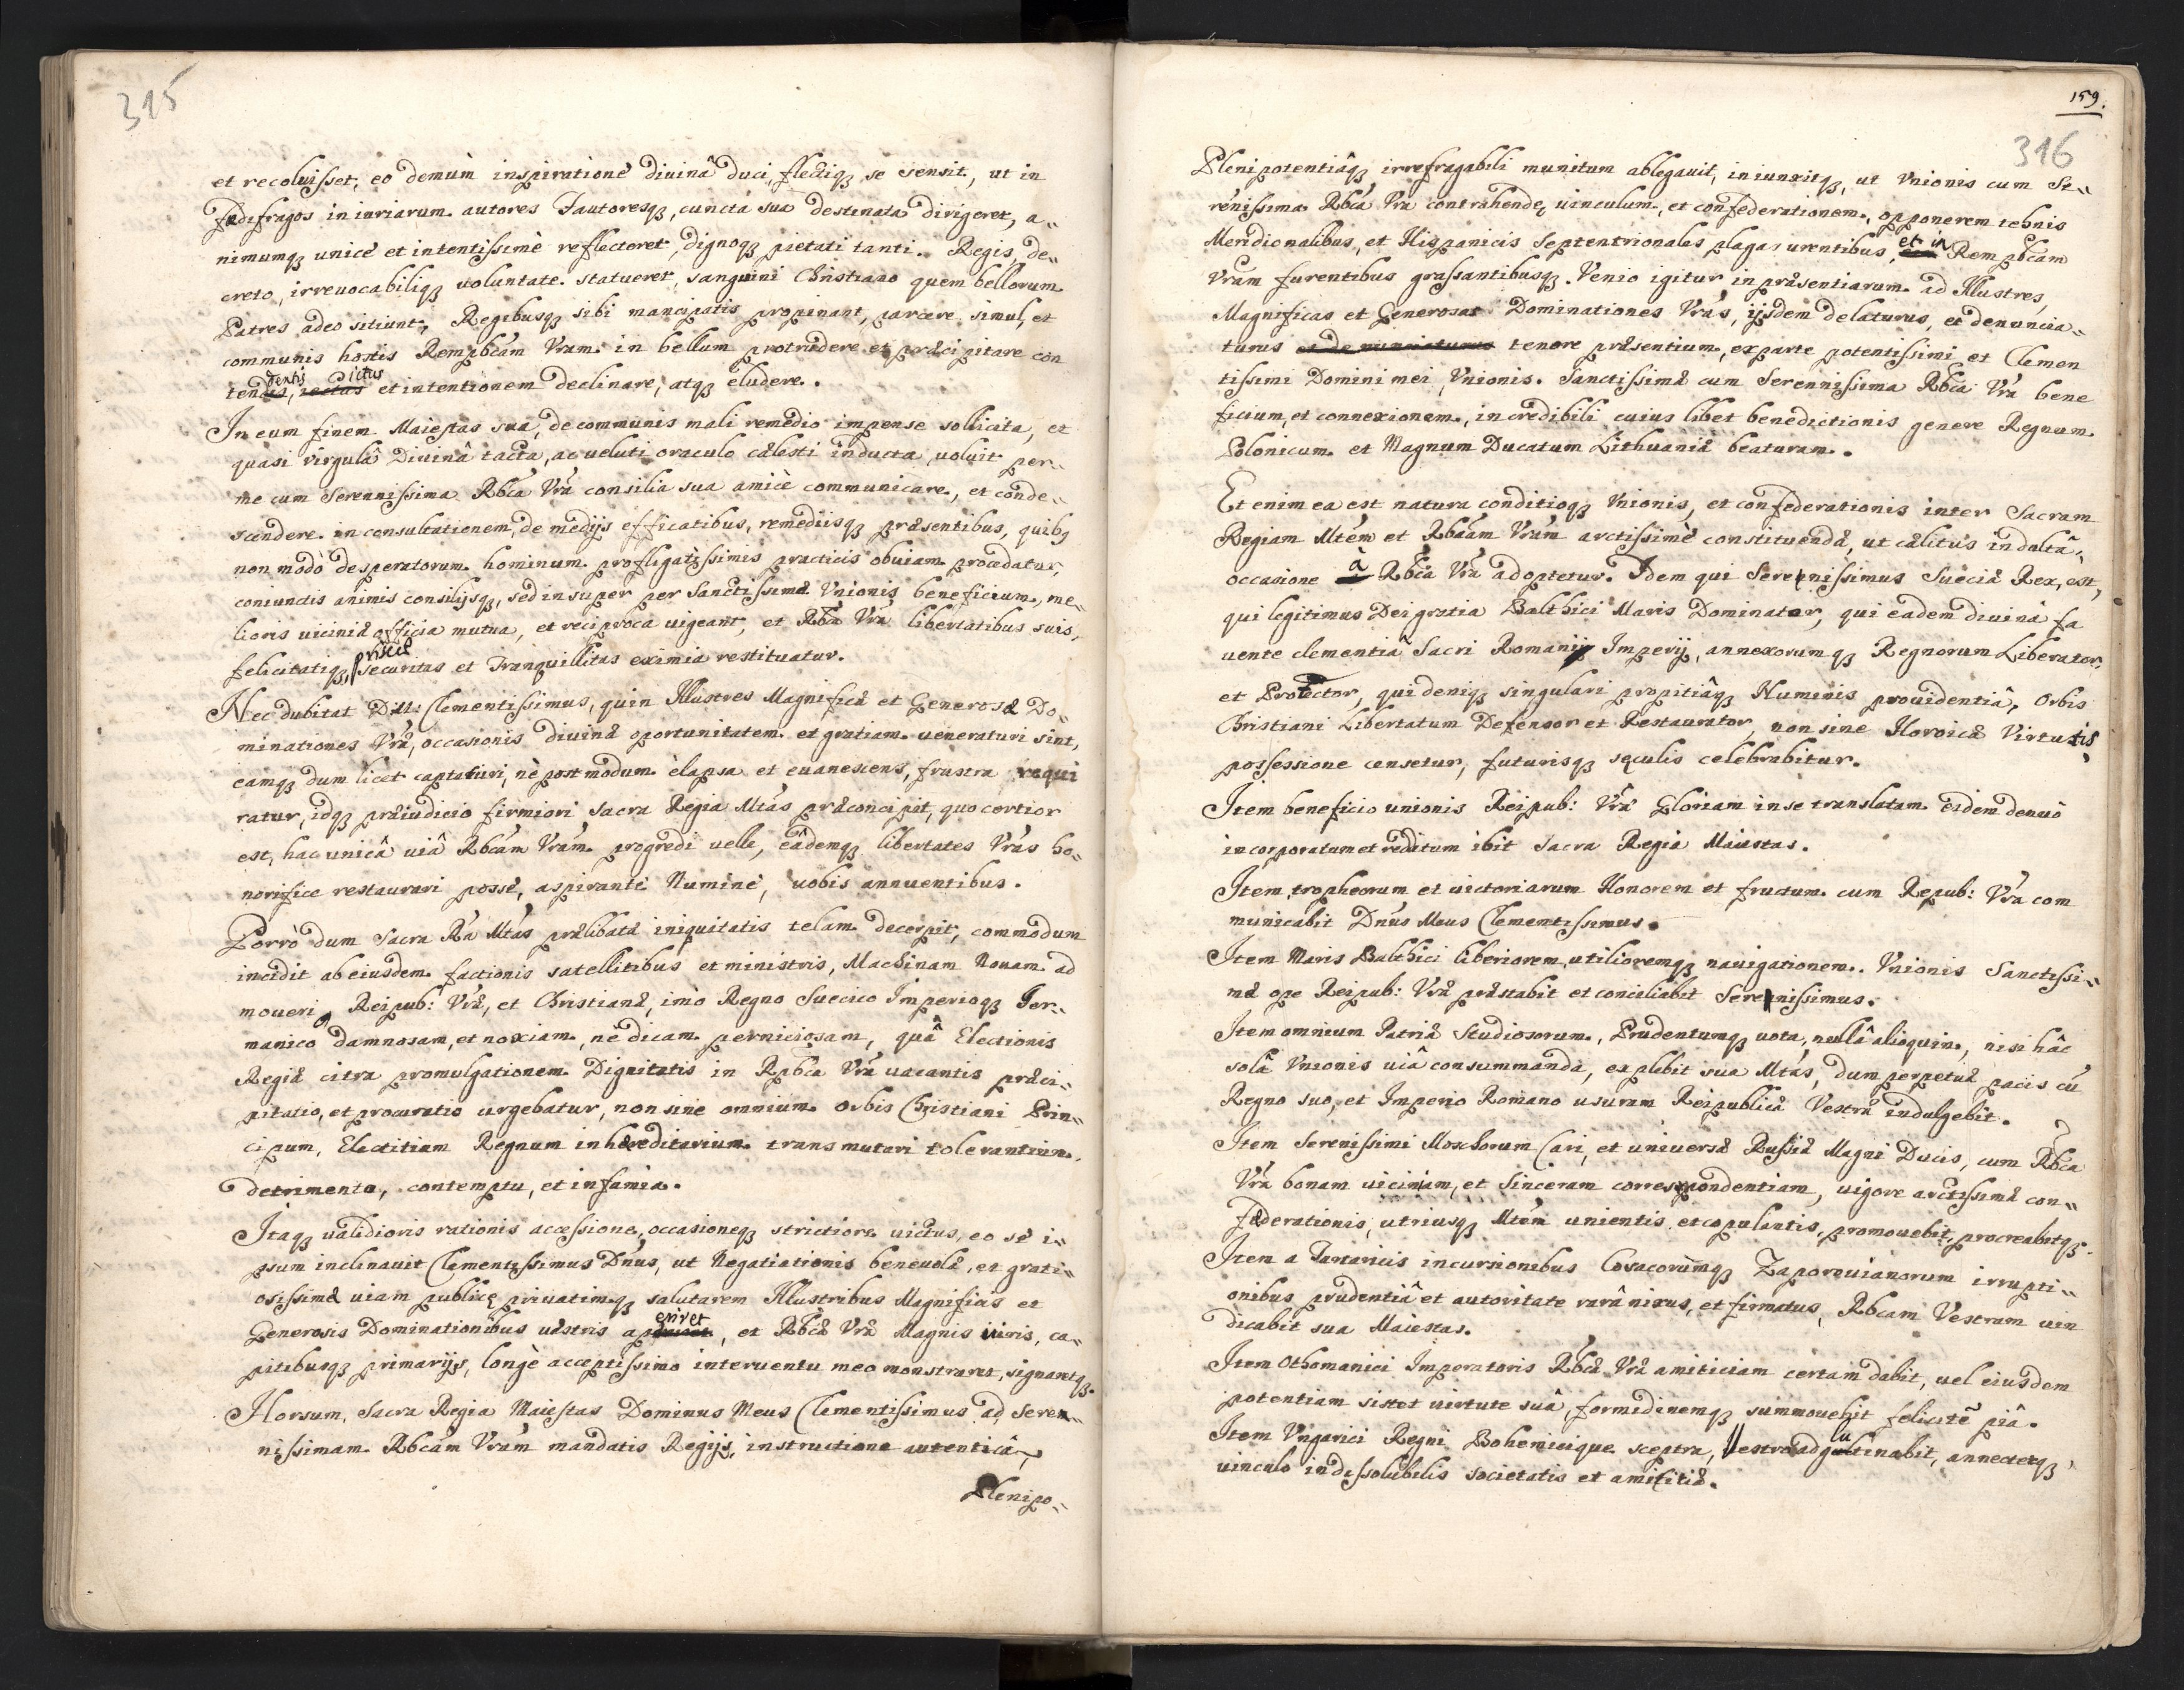 315
et recoluisset, eo demùm inspirationè diuinâ duci, flectiq; se sensit, ut in
Fædifragos iniuriarum autores Fautoresq;, cuncta sua destinata dirigeret, a„
nimumq; unicè et intentissimè reflecteret, dignoq; pietati tanti Regis, de„
creto, irreuocabiliq; uoluntate statueret, sanguini Christiano quem bellorum
Patres adeo sitiunt, Regibusq; sibi mancipatis propinant, parcere simul, et
communis hostis Rempbcám Vram in bellum protrudere et præcipitare con
dentis ictus
tendes, et intentionem declinare, atq; eludere.
In eum finem Maiestas sua, de communis mali remedio impense sollicita, et
quasi virgulâ Diuinâ tacta, ac ueluti oraculo cælesti inducta, uoluit per„
me cum Serennissima Rbcá Vrá consilia sua amicè communicare, et conde„
scendere in consultationem, de medijs efficatibus, remediisq; præsentibus, quibq
non modò desperatorum hominum profligatissimis practicis obuiam procedatur,
coniunctis animis consilijsq;, sed insuper per Sanctissimæ Vnionis beneficium, me„
lioris uiciniæ officia mutua, et reciproca uigeant, et Rbcá Vrá libertatibus suis,
priscæ
felicitatiq;, securitas et Tranquillitas eximia restituatur.
Nec dubitat Dnus Clementissimus, quin Illustres Magnificæ et Generosæ Do„
minationes Vræ, occasionis diuinæ oportunitatem et gratiam ueneraturi sint,
eamq; dum licet captaturi, nè postmodum èlapsa et euanescens, frustra requi
ratur, idq; præiudicio firmiori Sacra Regia Mtás præconcipit, quo certior
est, hac unicâ uiâ Rbcám Vrám progredi uelle, eâdemq; libertates Vrás ho„
norifice restaurari possè, aspirante Numine, uobis annuentibus.
Porrò dum Sacra Rá Mtás prælibatæ iniquitatis telam decerpit, commodum
incidit ab eiusdem factionis satellitibus et ministris, Machinam Nouam ad
moueri, Reipub: Vræ, et Christianæ, imò Regno Suecico Imperioq; Ger„
manico damnosam, et noxiam, nè dicam perniciosam, quâ Electionis
Regiæ citra promulgationem Dignitatis in Rpbca Vrá uacantis præci„
pitatio, et procuratio urgebatur, non sine omnium Orbis Christiani Prin„
cipum, Electitium Regnum in hæreditarium transmutari tolerantium,
detrimento, contemptu, et infamia.
Itaq; ualidioris rationis accessione, occasioneq; strictiore uictus, eo se i„
psum inclinauit Clementissimus Dnus, ut Negotiationis beneuolæ, et grati„
osissimæ uiam publicę, priuatimq; salutarem Illustribus Magnificis et
eriret
Generosis Dominationibus uæstris ap, et Rbcæ Vræ Magnis uiris, ca„
pitibusq; primarijs, longè acceptissimo interuentu meo monstraret, signaretq;.
Horsum, Sacra Regia Maiestas Dominus Meus Clementissimus ad Seren„
nissimam Rbcám Vrám mandatis Regijs, instructione autenticâ,
Plenipo„
159.
316
Plenipotentiâq; irrefragabili munitum ablegauit, iniunxitq;, ut Vnionis cum Se„
renissima Rbcá Vrá contrahendę, uinculum, et confederationem, opponerem technis
Meridionalibus, et Hispanicis Septentrionales plagas urentibus, et in Rempbcám
Vram furentibus grassantibusq;. Venio igitur in præsentiarum ad Illustres,
Magnificas et Generosas Dominationes Vrás, ijsdem delaturus, et denuncia„
turus et denunciaturus tenore præsentium, ex parte potentissimi et Clemen
tissimi Domini mei, Vnionis Sanctissimæ cum Serennissima Rbcá Vrá bene
ficium, et connexionem, incredibili cuius libet benedictionis genere Regnum
Polonicum et Magnum Ducatum Lithuaniæ beaturam.
Etenim ea est natura conditioq; Vnionis, et confederationis inter Sacram
Regiam Mtém et Rbcám Vrám arctissimè constituendæ, ut cælitus indultâ
occasione à Rbca Vrá adoptetur. Idem qui Serennissimus Sueciæ Rex, est,
qui legitimus Dei gratia Balthici Maris Dominator, qui eadem diuina fa
uente clementiâ Sacri Romanij Imperij, annexorumq; Regnorum Liberator,
et Protector, qui deniq; singulari propitiâq; Numinis prouidentiâ, Orbis
Christiani Libertatum Defensor et Restaurator, non sine Heroicæ Virtutis
possessione censetur, futurisq; sęculis celebrabitur.
Item beneficio unionis Reipub: Vræ Gloriam in se translatam eidem denuò
incorporatum et reditum ibit Sacra Regia Maiestas.
Item, tropheorum et uictoriarum Honorem et fructum cum Repub: Vrá com
municabit Dnus Meus Clementissimus.
Item Maris Balthici liberiorem, utilioremq; nauigationem Vnionis Sanctissi„
mæ ope Reipub: Vræ præstabit et conciliabit Serennissimus.
Item omnium Patriæ Studiosorum, Prudentumq; uota, nullâ alioquin, nisi hâc
solâ Vnionis uiâ consummanda, explebit sua Mtás, dum perpetuæ pacis cú
Regno suo, et Imperio Romano usuram Reipublicæ Vestræ indulgebit.
Item Serenissimi Moschorum Cari, et uniuersæ Russiæ Magni Ducis, cum Rbca
Vrá bonam uiciniam, et Sinceram correspondentiam, uigore arctissimæ con„
fæderationis, utriusq; Mtém unientis et copulantis, promouebit, procreabitq;.
Item a Tartaricis incursionibus Cosacorùmq; Zaporouianorum irrupti„
onibus prudentiâ et autoritate rarâ nixus, et firmatus, Rbcam Vestram uin
dicabit sua Maiestas.
Item Othomanici Imperatoris Rbcæ Vræ amiticiam certam dabit, uel eiusdem
potentiam sistet uirtute suâ, formidinemq; summouebit felicitè piâ.
Item Vngarici Regni Bohemicique sceptra, Vestræ adglutinabit, annectetq;
uinculo indissolubilis societatis et amicitiæ.